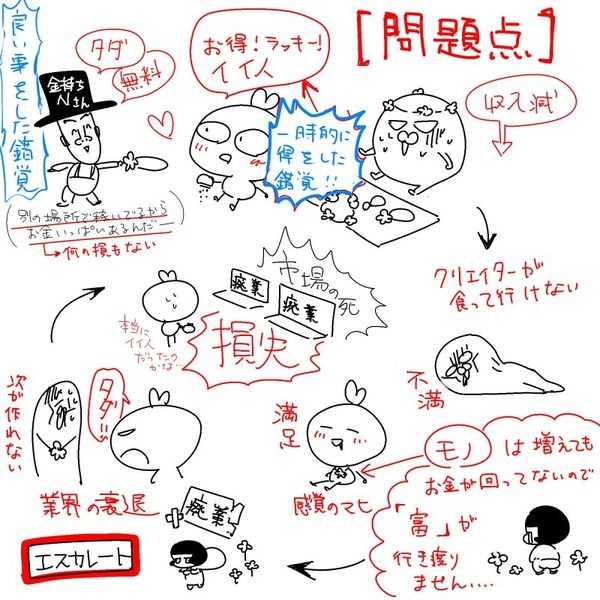 [問題点]
良い事をした錯覚
タダ
無料
金持ち
Nさん
お得!ラッキー!
イイ人
一時的に
得をした
錯覚!!
収入減
別の場所で稼いでるから
お金いっぱいあるんだー
→何の損もない
クリエイターが
食って行けない
不満
市場の死
廃業
廃業
損失
本当に
イイ人
だったの
かな…
次が作れない
タダ!!
業界の衰退
満足
感覚のマヒ
モノは増えても
お金が回ってないので
「富」が
行き渡り
ません….
廃業
エスカレート